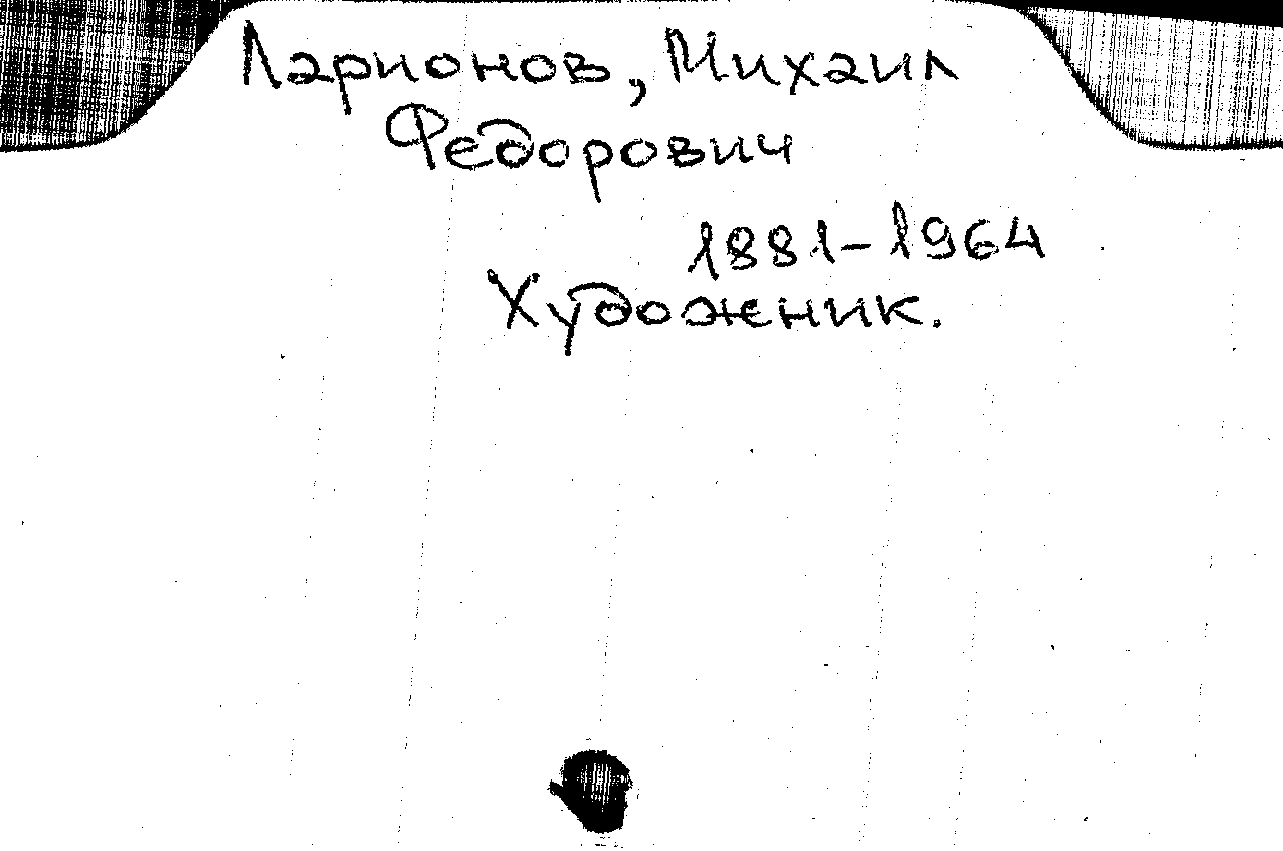 Ларионов, Михаил
Федорович
1881-1964
Художник.